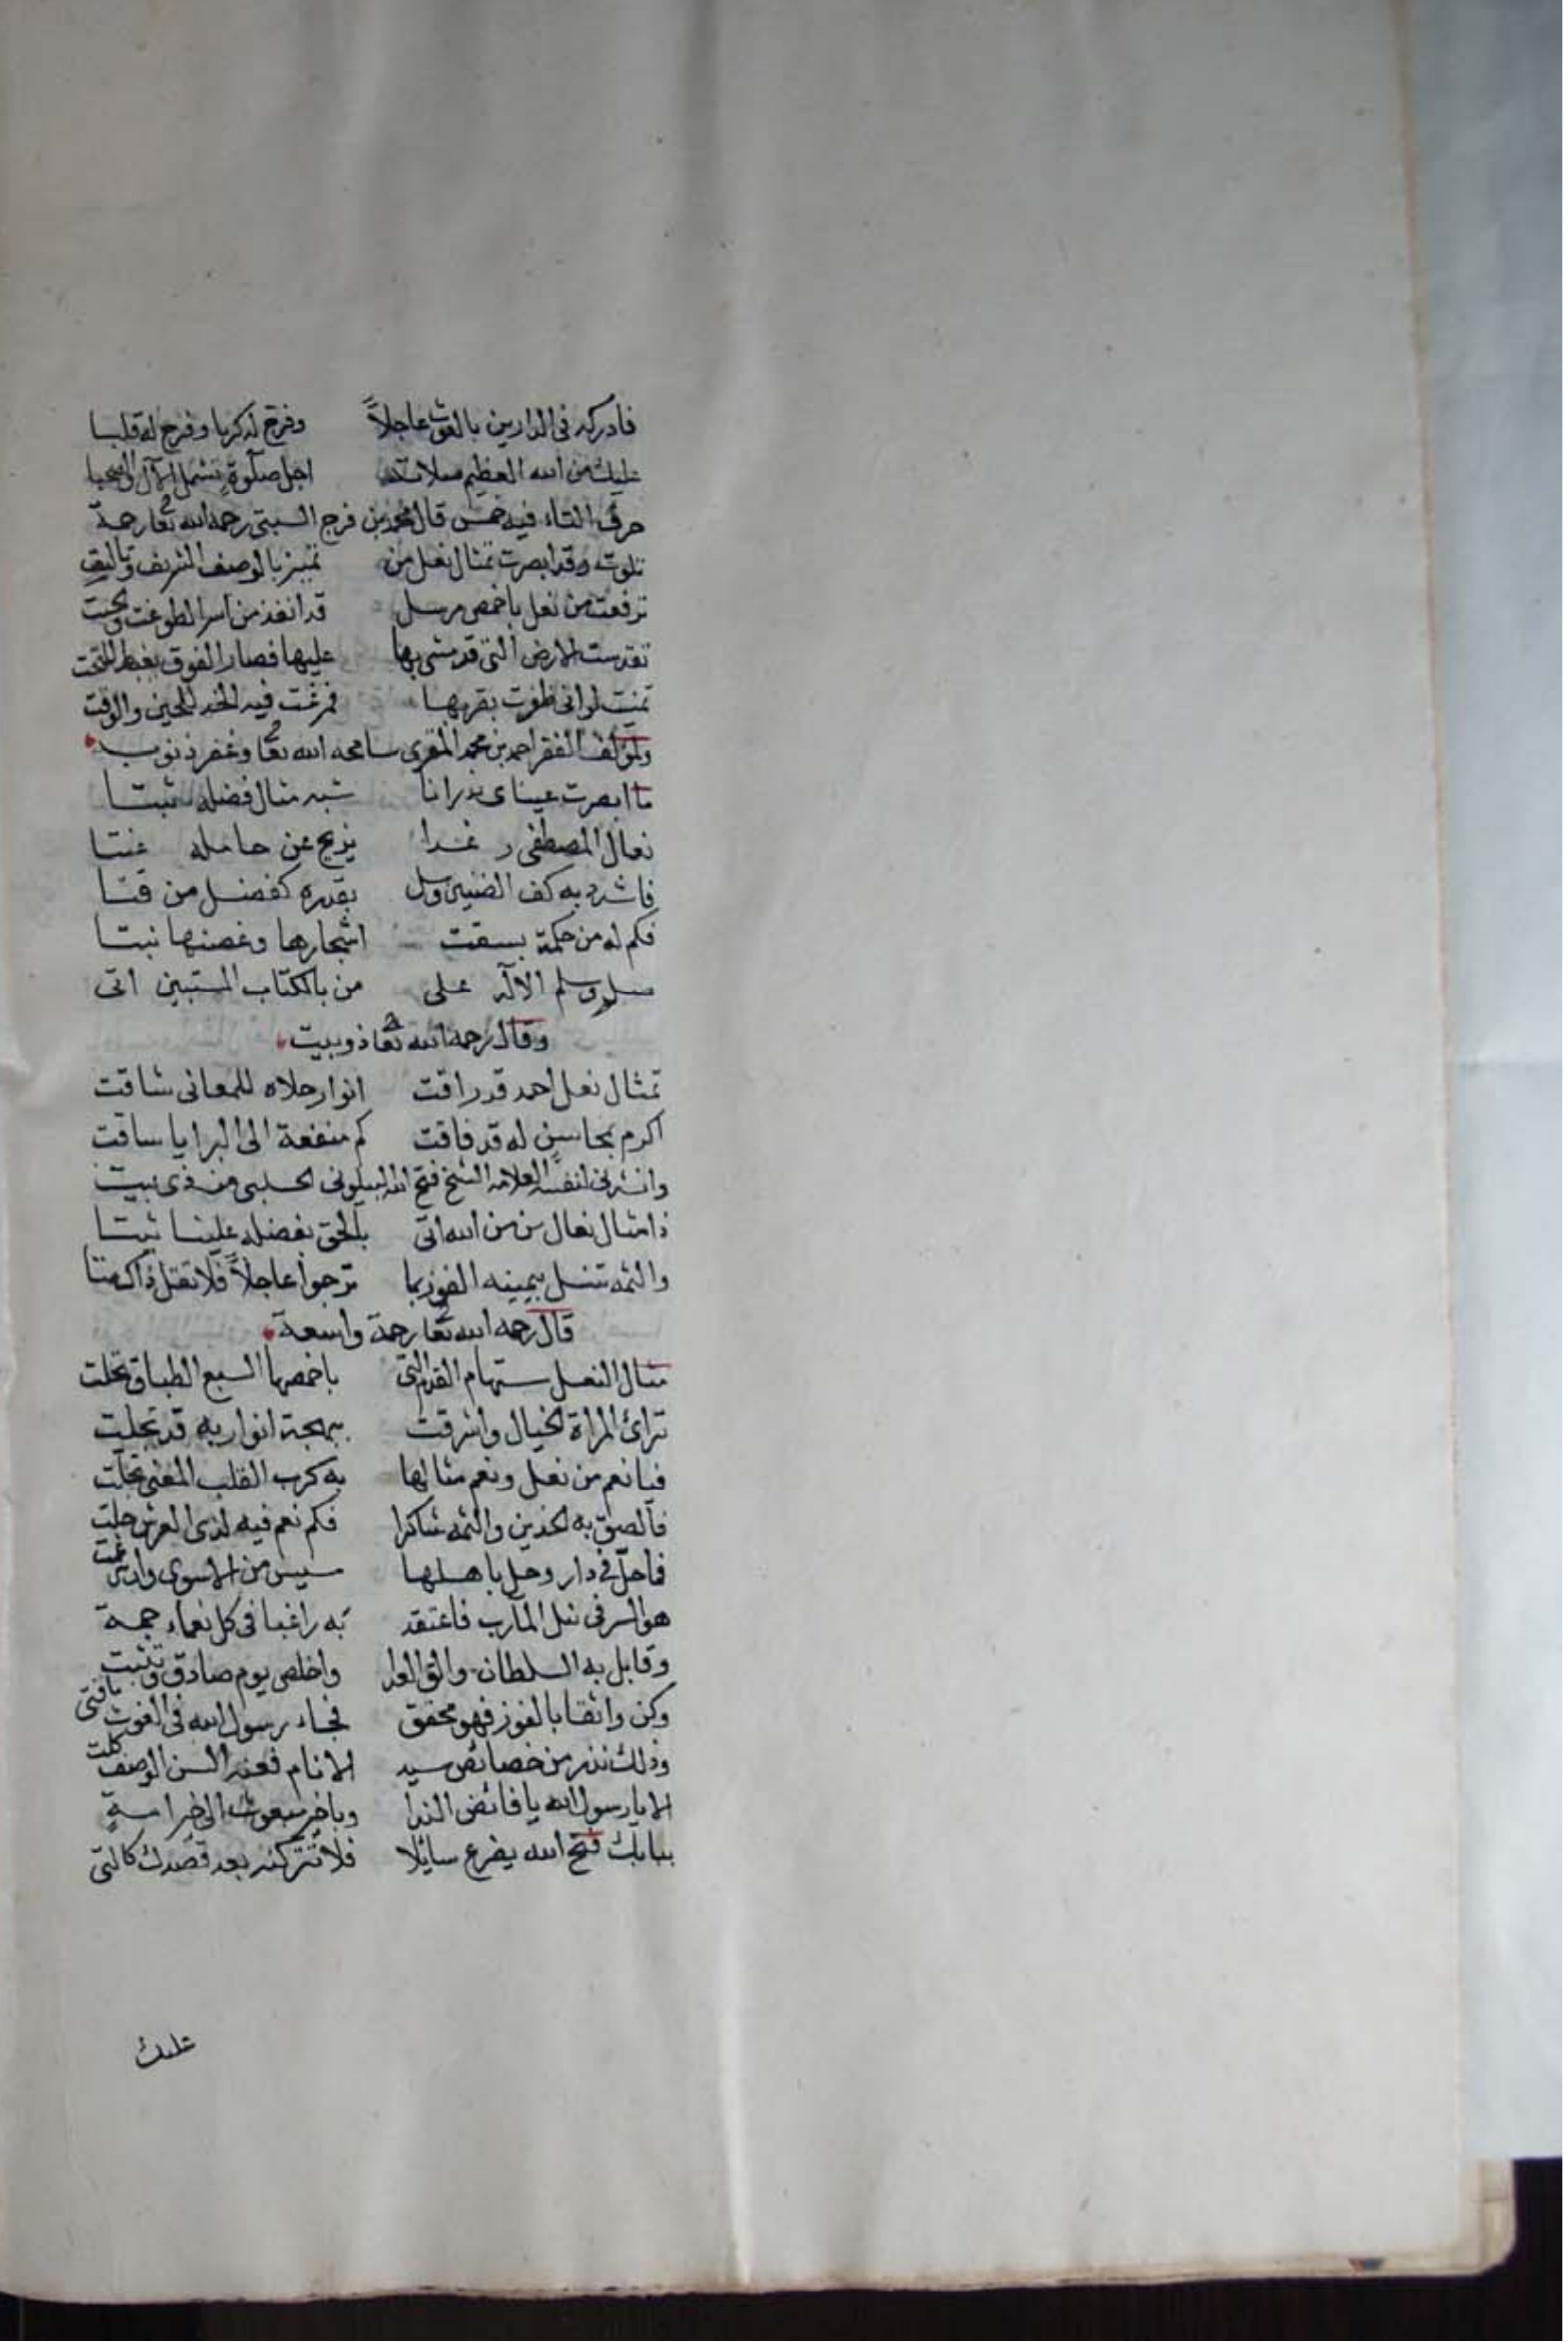 فادركه فى الدارين بالغوث عاجلاً وفرج له كربا وفرح له قلبا
عليك من الله العظيم صلاته اجل صلوة تشمل الآل والصحبا
حرف التاء فيه خمس قال محمد بن فرج السبتى رحمه الله تعا رحمة
تلوت وقد ابصرت تمثال نعل من تميز بالوصف الشريف وباليت
ترفعت من نعل باخمص مرسل قد انقذ من اسر الطوغت
تقدست الارض التى قد مشى بها عليها فصار الفوق يغبط للتحت
تمنيت لوانى ظفرت بقربها فمرغت فيه الخد للحين والوقت
ولمؤلفه الفقير احمد بن محمد المقرى سامحه الله تعا وغفر ذنوبه
ما ابصرت عيناى شبه مثال فضله ثبتا
نعال المصطفى غدا يزيح عن حامله عنتا
فاشدد به كف الضنين وسل بقدره كفضل من قتا
فكم له من حكمة بسقت اشجارها وغصنها نبتا
صلى وسلم الاله على من بالكتاب المستبين اتى
وقال رحمه الله تعا ذوبيت
تمثال نعل احمد قد راقت انوار حلاه للمعانى شاقت
اكرم بمحاسن له قد فاقت كم منفعة الى البرايا ساقت
وانشدنى لنفسه العلامه الشيخ فتح الله البيلونى الحلبى من ذى بيت
ذا مثال نعال من من الله اتى بالحق بفضله علينا ثبتا
والثمه تنل بيمينه الفوز بما ترجوا عاجلاً فلا تقل ذاك متا
قال رحمه الله تعا رحمة واسعة
مثال النعل القدم التى باخمصها السبع الطباق تحلت
تراى لمراة الخيال واشرقت ببهجة انوار به قد تجلت
فيا نعم من نعل ونعم مثالها به كرب القلب المعنى تجلت
فالصق به الخدين والثمه شاكرا فكم نعم فيه لذى العرش جلت
فما حل فى دار وحل باهلها من الاسوى
هو السر فى نيل المآرب فاعتقد به راغبا فى كل نعماء جمة
وقابل به السلطان والق العدا واخلص يوم صادق وتثبت
وكن واثقا بالفوز فهو محقق فجاه رسول الله فى الغوث يا فتى
وذلك نزر من خصائص سيد الانام فعنه السن الوصف كلت
الا يا رسول الله يا فائض الندا ويا خير مبعوث الى خير امة
ببابك فتح الله يضرع سايلا فلا تتركنه بعد قصدك كالتى
عليك